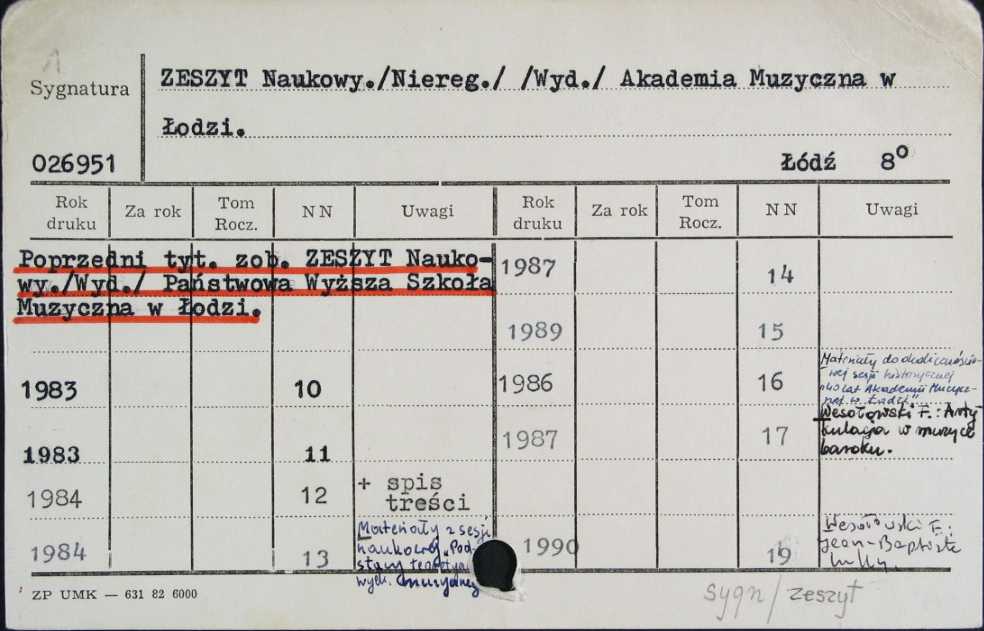 1
Sygnatura
ZESZYT Naukowy./Niereg./ /Wyd./ Akademia Muzyczna w
Łodzi.
026951
Łódź 8⁰
Rok druku Za rok Tom Rocz. NN Uwagi Rok druku Za rok Tom Rocz. NN Uwagi
Poprzedni tyt. zob. ZESZYT Nauko-
wy./Wyd./ Państwowa Wyższa Szkoła
Muzyczna w Łodzi.
1983 10
1983 11
1984 12 + spis
treści
1984 13 Materiały z sesji
naukowej „Pod-
stawy
wych. muzycznej
1987 14
1989 15
1986 16 Materiały do okolicznościo-
wej sesji historycznej
"40 lat Akademii Muzycz-
nej w Łodzi"
1987 17 Wesołowski F.: Arty
kulacja w muzyce
baroku.
1990 19 Wesołowski F.:
Jean-Baptiste
Lully.
ZP UMK — 631 82 6000
sygn/zeszyt